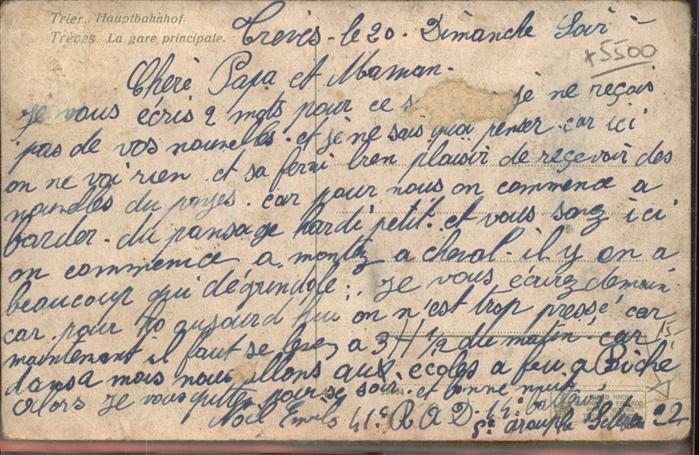 Trier. Hauptbahnhof.
Trèves. La gare principale.
Trèves - le 20. Dimanche Soir
+5500
Chère Papa et Maman -
Je vous écris 2 mots pour ce s je ne reçois
pas de vos nouvelles. et je ne sais quoi penser. car ici
on ne voi rien. et sa ferai bien plaisir de reçevoir des
nouvelles du payes. car pour nous on commence a
barder. du pansage hardi petit. et vous savez ici
on commence a montéz a cheval. il y on a
beaucoup qui dégringole. Je vous écrirez demain
car pour aujourd hui on n'est trop pressé car
maintenant il faut se lever a 3 H 1/2 du matin. car
dans a mois nous allons aux écoles a feu a
Alors je vous quitte pour se soir. et bonne nuit.
Noël 41e R A D - 14e batterie
5e groupe 22